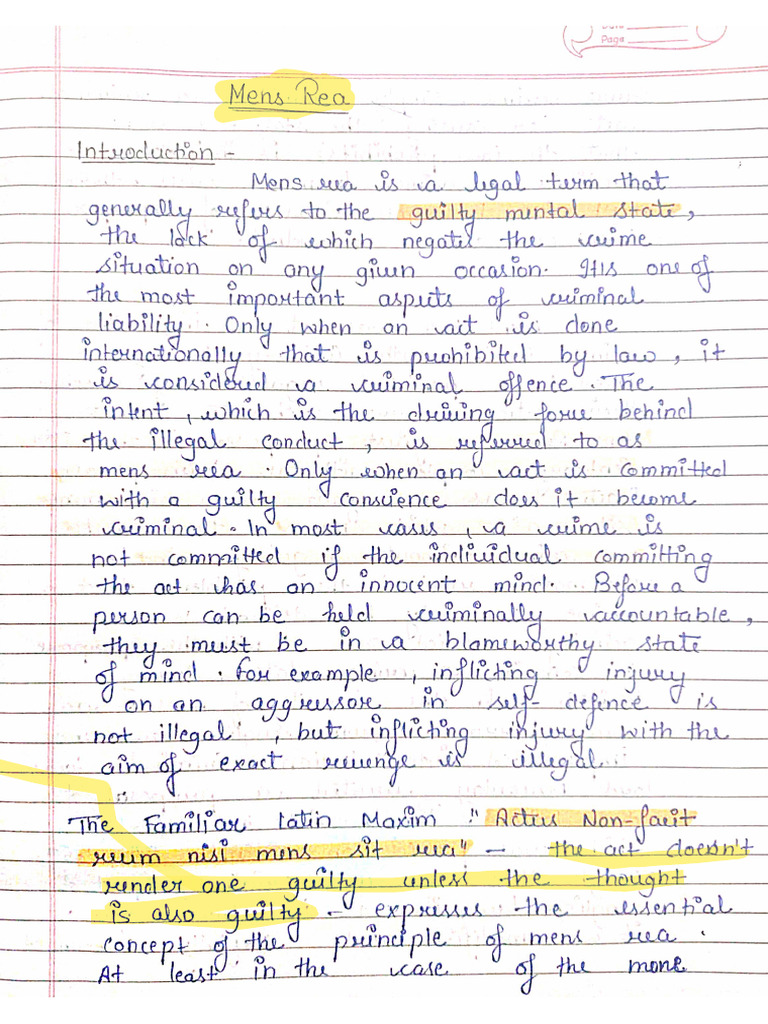 Page
Mens Rea
Introduction -
Mens rea is a legal term that
generally refers to the guilty mental state,
the lack of which negates the crime
situation on any given occasion. It is one of
the most important aspects of criminal
liability. Only when an act is done
internationally that is prohibited by law, it
is considered a criminal offence. The
intent, which is the driving force behind
the illegal conduct, is referred to as
mens rea. Only when an act is committed
with a guilty conscience does it become
criminal. In most cases, a crime is
not committed if the individual committing
the act has an innocent mind. Before a
person can be held criminally accountable,
they must be in a blameworthy state
of mind. For example, inflicting injury
on an aggressor in self-defence is
not illegal, but inflicting injury with the
aim of exact revenge is illegal.
The Familiar Latin Maxim "Actus Non-facit
reum nisi mens sit rea" - the act doesn't
render one guilty unless the thought
is also guilty - expresses the essential
concept of the principle of mens rea.
At least in the case of the more